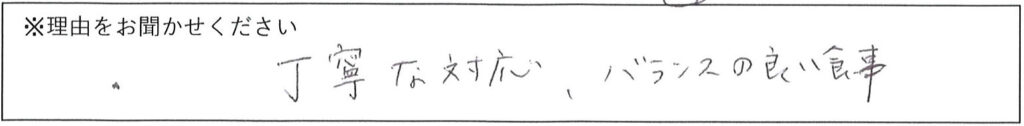 ※理由をお聞かせください
・ 丁寧な対応、バランスの良い食事